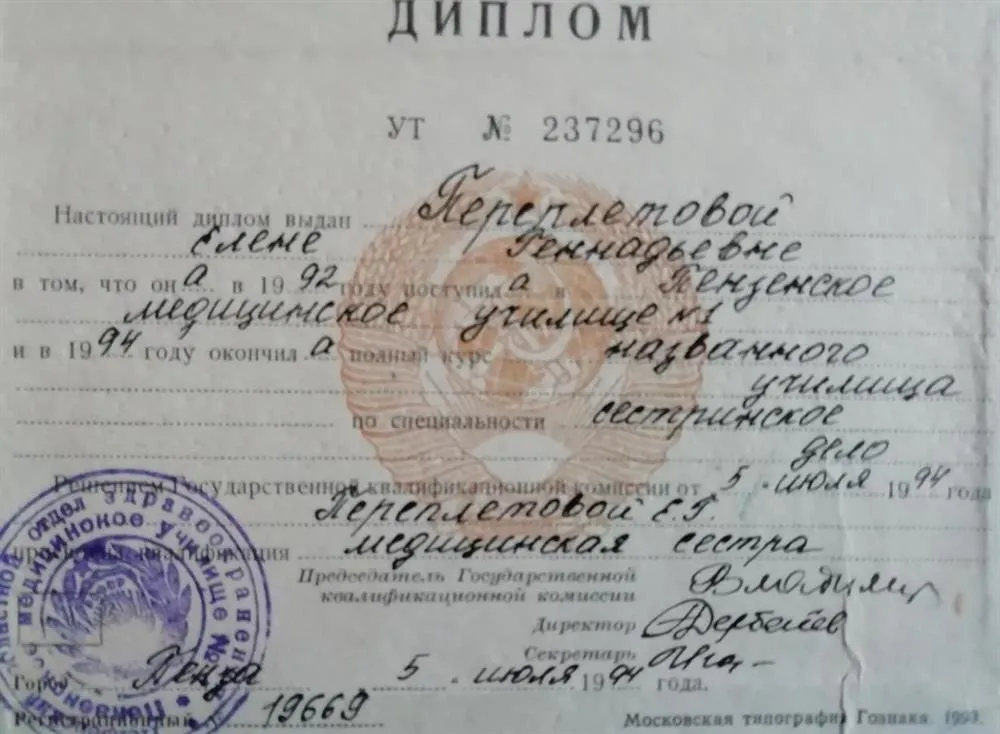 ДИПЛОМ
УТ № 237296
Настоящий диплом выдан Переплетовой
Елене Геннадьевне
в том, что она в 1992 году поступила в Пензенское
медицинское училище №1
и в 1994 году окончила полный курс названного
училища
по специальности сестринское
дело
Решением Государственной квалификационной комиссии от 5 июля 1994 года
Переплетовой Е.Г.
присвоена квалификация медицинская сестра
Председатель Государственной
квалификационной комиссии
Директор
Секретарь
Город Пенза 5 июля 1994 года.
Регистрационный № 19669
Московская типография Гознака. 1993.
отдел здравоохранения
медицинское училище №